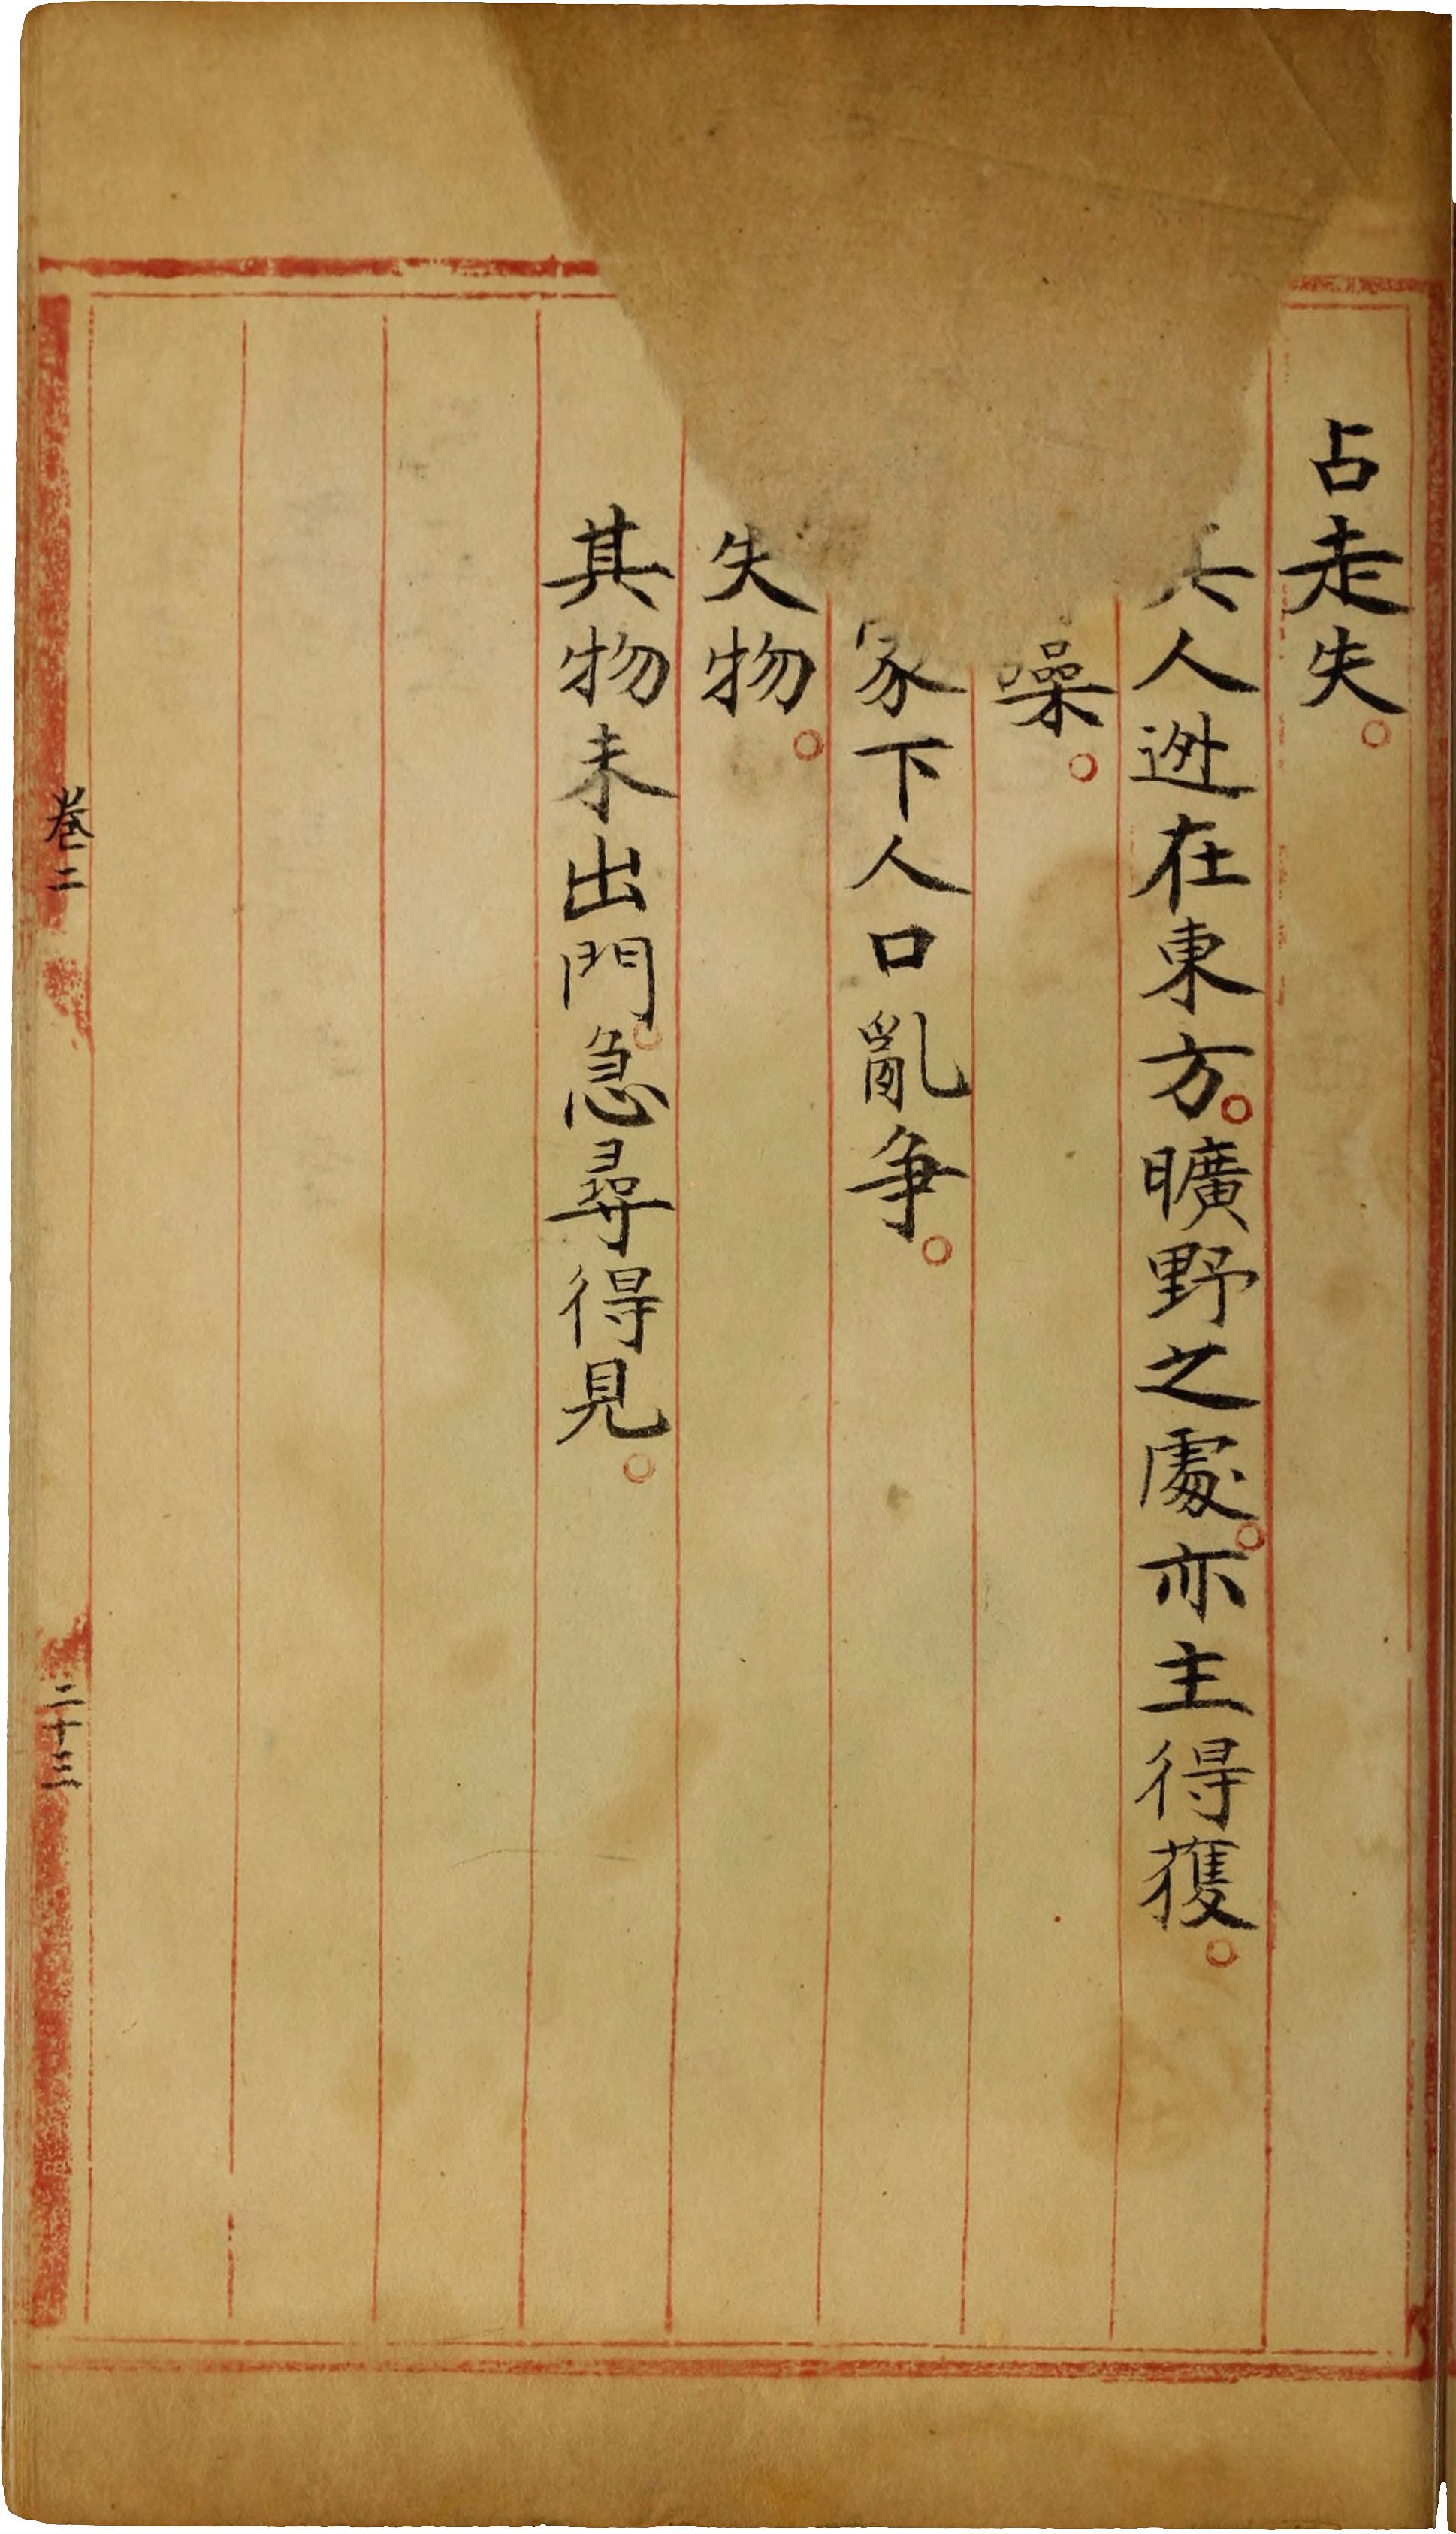 占走失。
人逃在東方。曠野之處。亦主得獲。
噪。
家下人口亂爭。
失物。
其物未出門。急尋得見。
卷二
二十三